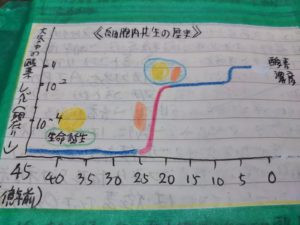 《細胞内共生の歴史》
大気中の酸素レベル(現代=1)
1
10⁻²
10⁻⁴
酸素濃度
生命誕生
45 40 35 30 25 20 15 10 5 0
(億年前)